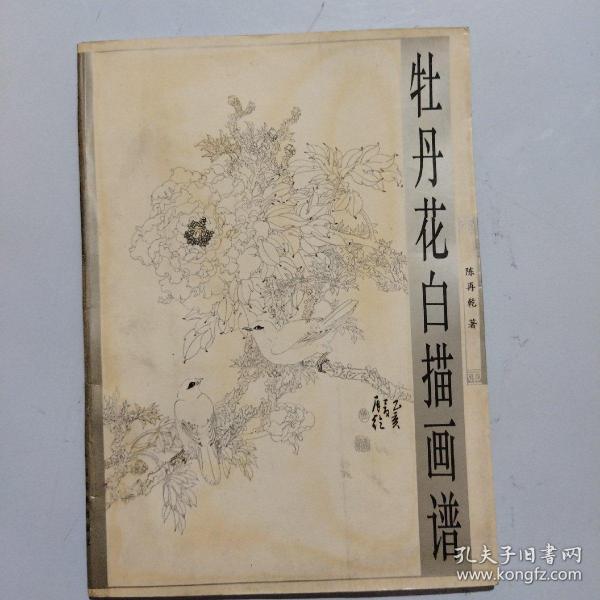 牡丹花白描画谱
陈再乾 著
乙亥
孔夫子旧書网
www.kongfz.com